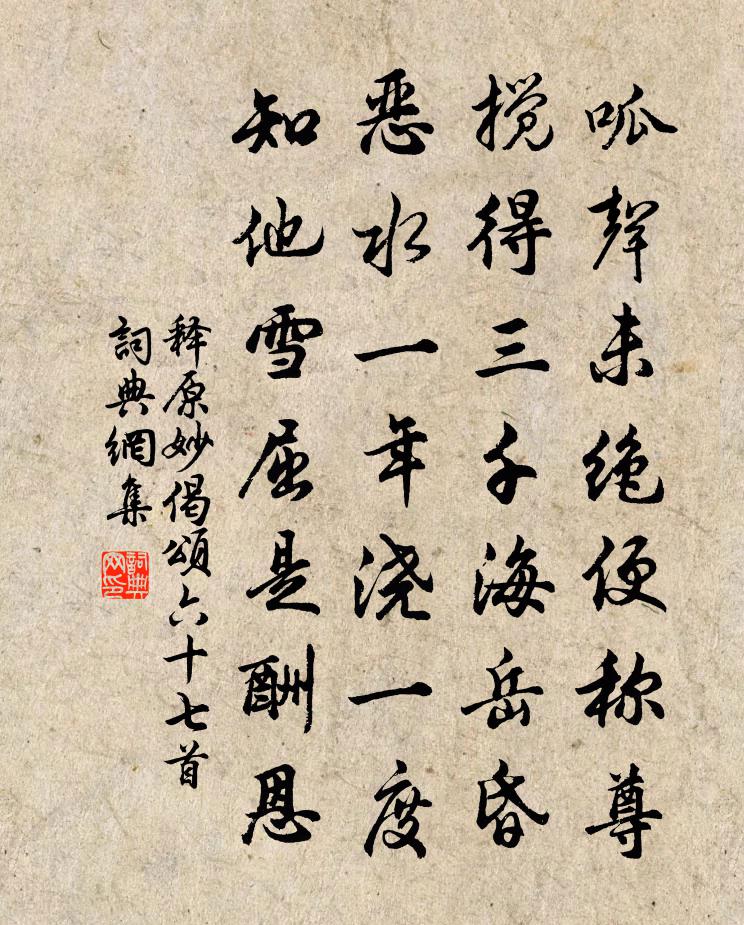 呱聲未绝便称尊
搅得三千海岳昏
恶水一年浇一度
知他雪屈是酬恩
释原妙偈颂六十七首
詞典網集
詞典网印